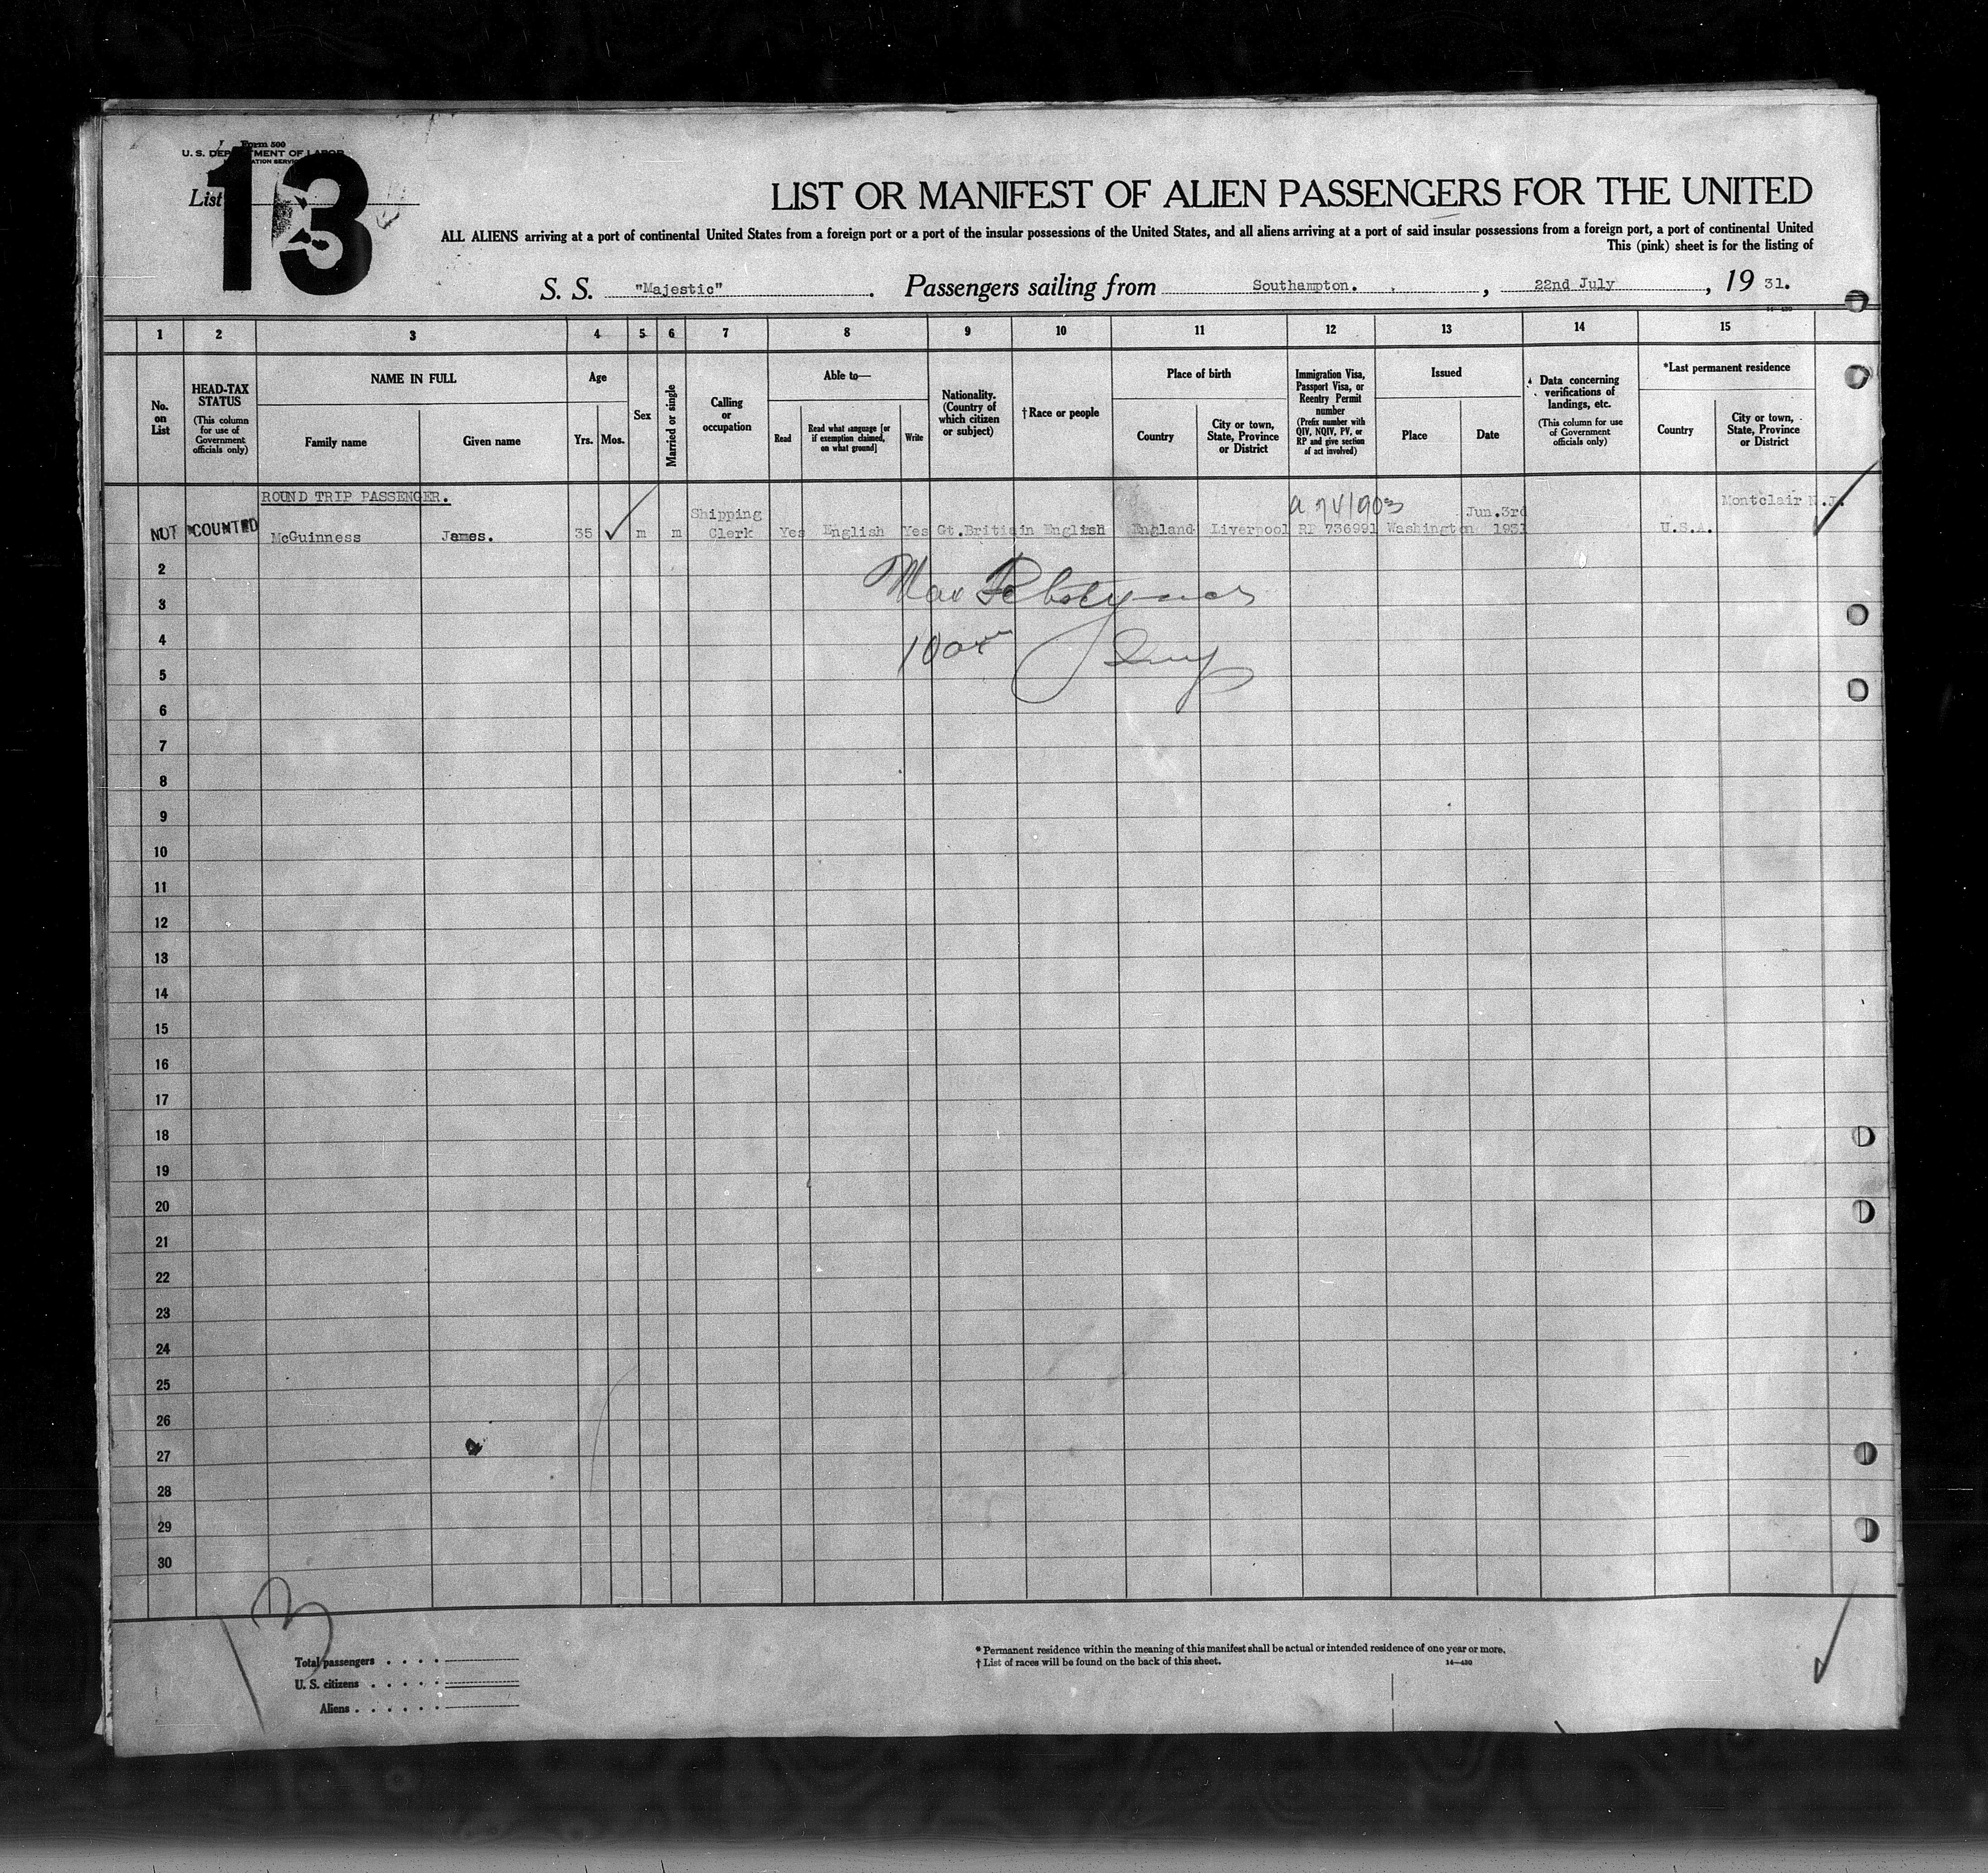 Form 500
U. S. DEPARTMENT OF LABOR
List
13
LIST OR MANIFEST OF ALIEN PASSENGERS FOR THE UNITED
ALL ALIENS arriving at a port of continental United States from a foreign port or a port of the insular possessions of the United States, and all aliens arriving at a port of said insular possessions from a foreign port, a port of continental United
This (pink) sheet is for the listing of
S. S. "Majestic" . Passengers sailing from Southampton. , 22nd July , 19 31.
14—430
1 2 3 4 5 6 7 8 9 10 11 12 13 14 15
No. on List
HEAD-TAX STATUS
(This column for use of Government officials only)
NAME IN FULL
Family name
Given name
Age
Yrs.
Mos.
Sex
Married or single
Calling or occupation
Able to—
Read
Read what language [or if exemption claimed, on what ground]
Write
Nationality. (Country of which citizen or subject)
†Race or people
Place of birth
Country
City or town, State, Province or District
Immigration Visa, Passport Visa, or Reentry Permit number
(Prefix number with QIV, NQIV, PV, or RP and give section of act involved)
Issued
Place
Date
Data concerning verifications of landings, etc.
(This column for use of Government officials only)
*Last permanent residence
Country
City or town, State, Province or District
ROUND TRIP PASSENGER.
NOT COUNTED McGuinness James. 35 m m Shipping Clerk Yes English Yes Gt.Britiain English England Liverpool RP 736991 Washington Jun.3rd 1931 U.S.A. Montclair N.J.
2
3
4
5
6
7
8
9
10
11
12
13
14
15
16
17
18
19
20
21
22
23
24
25
26
27
28
29
30
13
Total passengers . . . .
U. S. citizens . . . . .
Aliens . . . . . .
* Permanent residence within the meaning of this manifest shall be actual or intended residence of one year or more.
† List of races will be found on the back of this sheet.
14—430